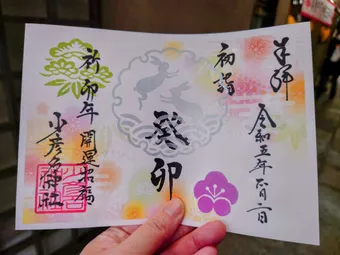 奉拝
令和五年正月二日
初詣
癸卯
祈卯年 開運招福
小彦名神社